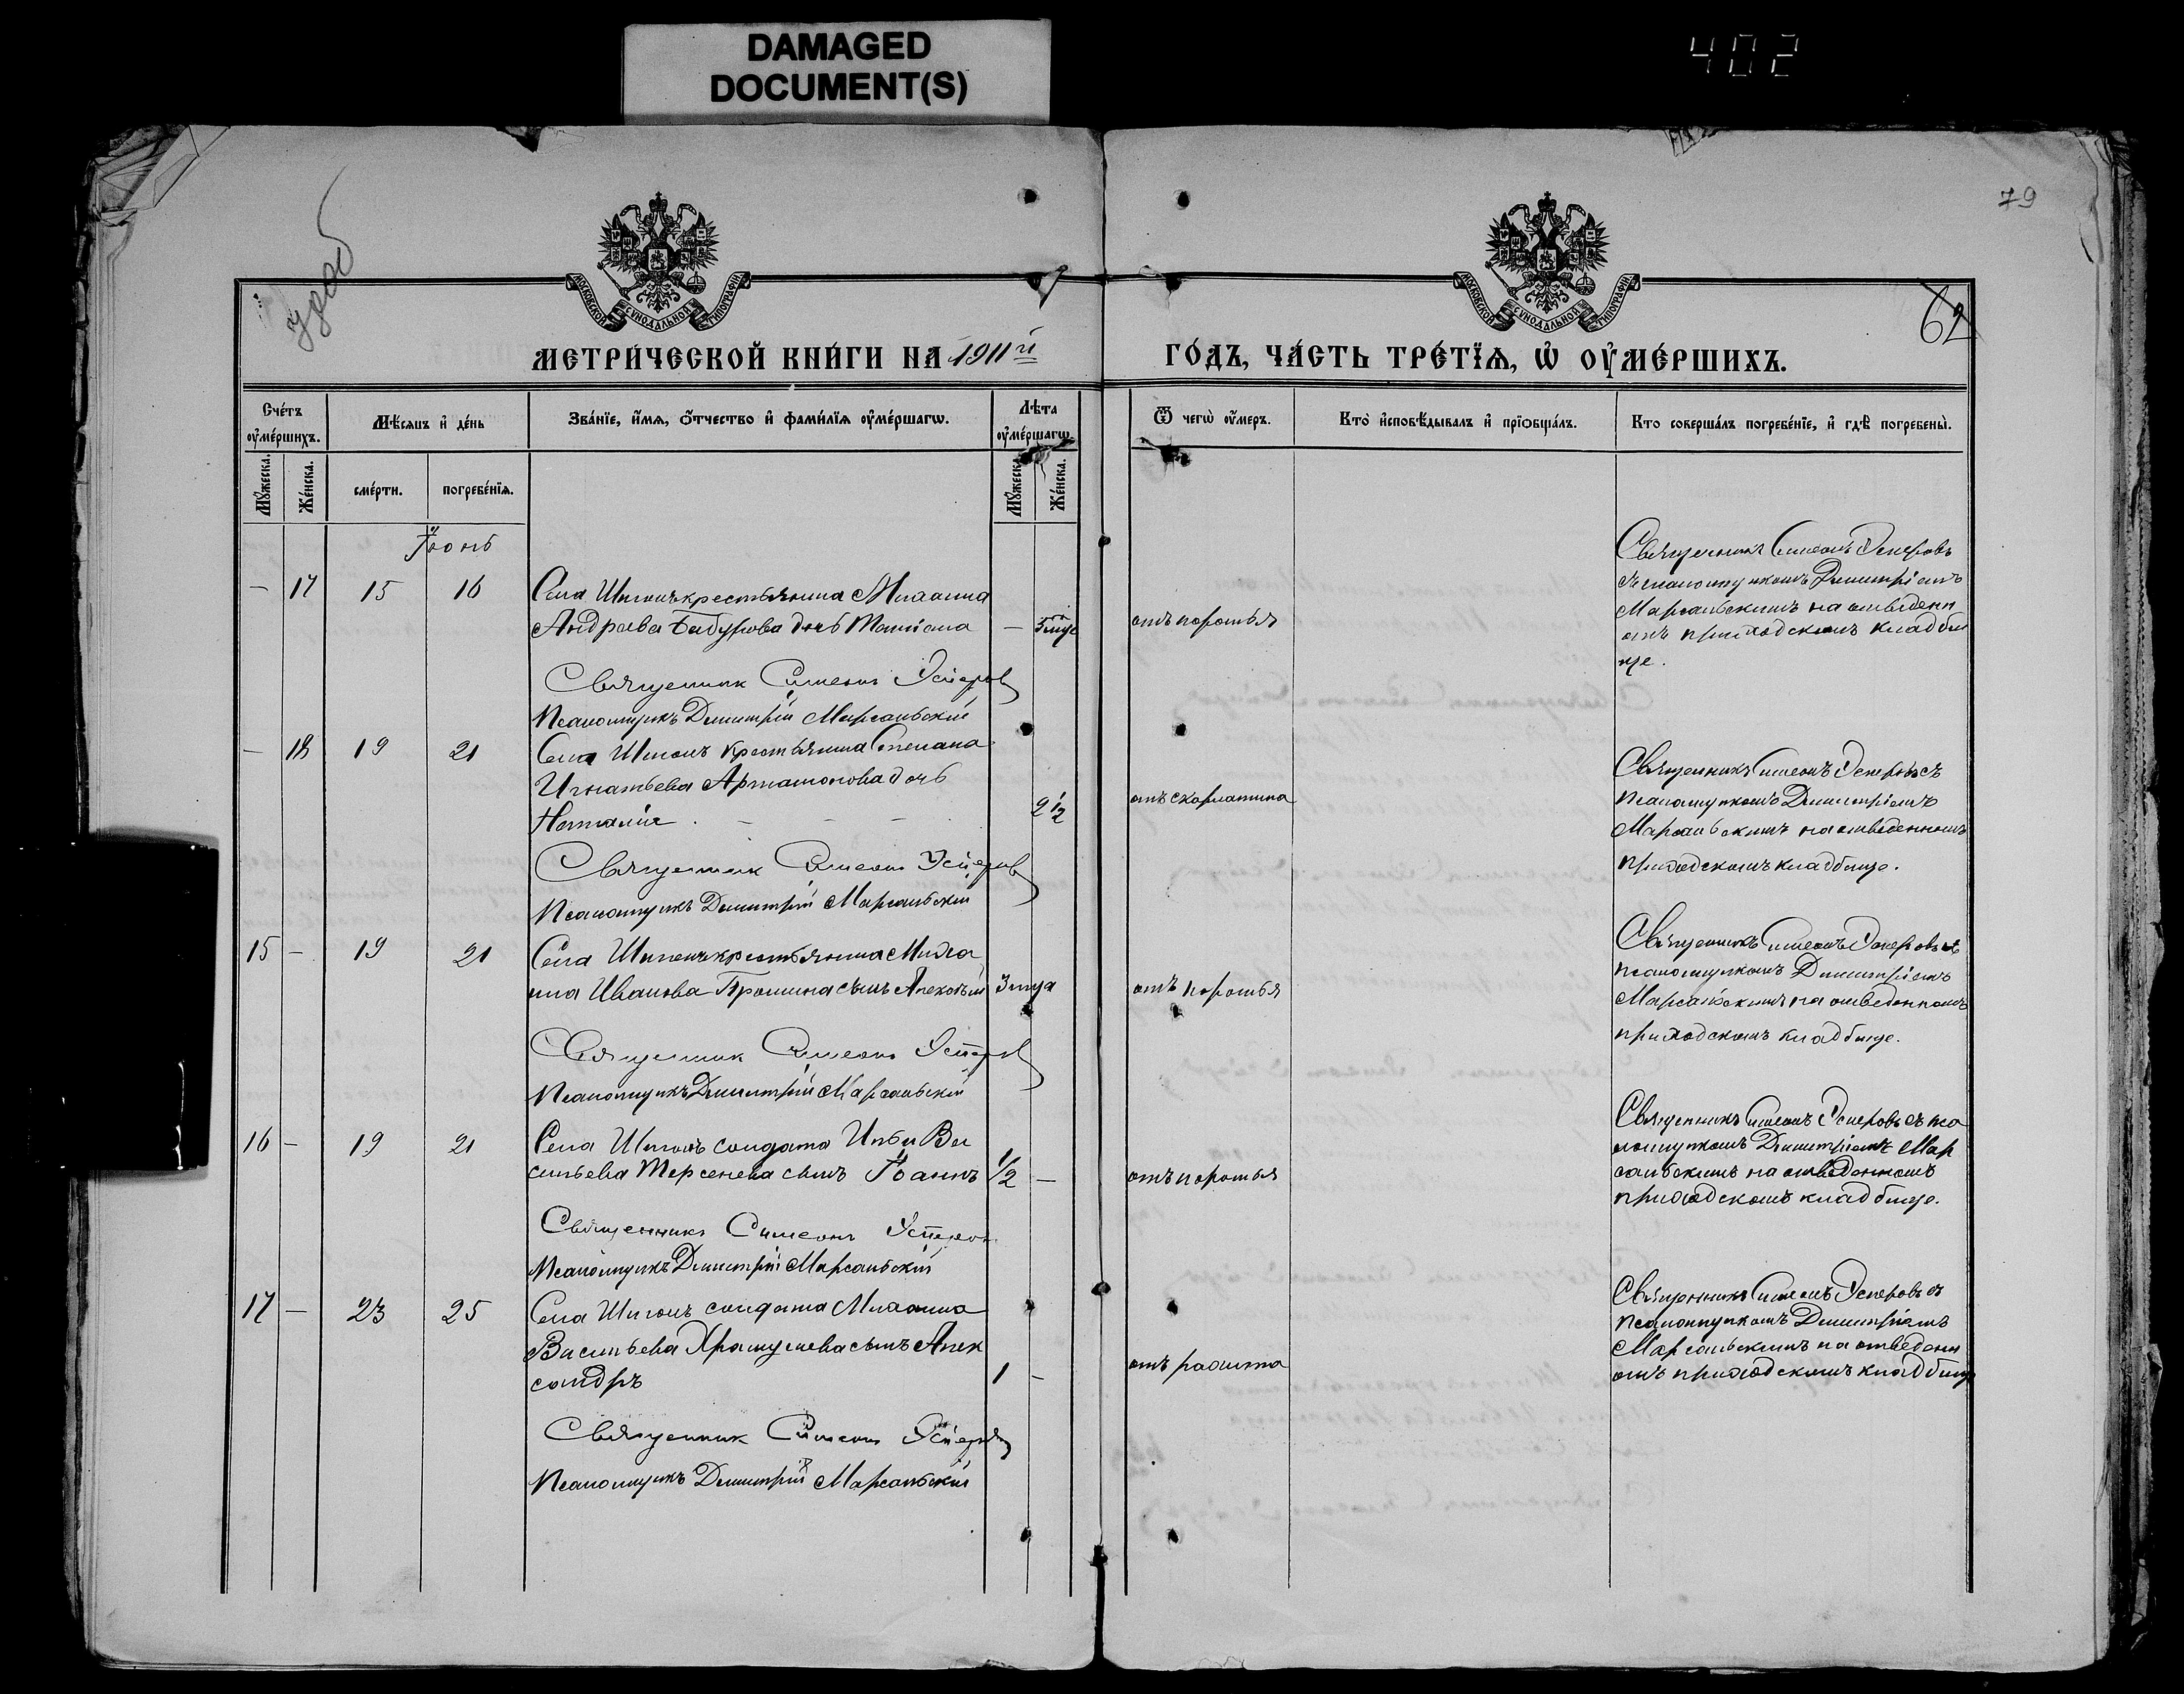 DAMAGED
DOCUMENT(S)
402
79
62
МОСКОВСКОЙ СУНОДАЛЬНОЙ ТИПОГРАФІИ
МОСКОВСКОЙ СУНОДАЛЬНОЙ ТИПОГРАФІИ
МЕТРИ́ЧЕСКОЙ КНИ́ГИ НА 1911й
ГО́ДЪ, ЧА́СТЬ ТРЕ́ТЇѦ, Ѡ҆ ОУ҆МЕ́РШИХЪ.
Сче́тъ оу҆ме́ршихъ.
Мѣ́сяцъ и҆ де́нь
Зва́нїе, и҆́мя, ѻ҆́тчество и҆ фами́лїя оу҆ме́ршагѡ.
Лѣ́та оу҆ме́ршагѡ.
Ѿ чегѡ̀ оу҆́меръ.
Кто̀ и҆сповѣ́дывалъ и҆ прїѻбща́лъ.
Кто соверша́лъ погребе́нїе, и҆ гдѣ̀ погребены̀.
Мꙋ́жеска.
Же́нска.
сме́рти.
погребе́нїя.
Мꙋ́жеска.
Же́нска.
Іюнь
— 17 15 16 Села Шигонъ крестьянина Михаила
Андреева Бабурова дочь Татіана —
отъ поротья
Священникъ Симеонъ Эсперовъ
съ псаломщикомъ Димитріемъ
Марсальскимъ на отведенн
омъ приходскомъ кладби
ще.
Священник Симеонъ Эсперов
Псаломщикъ Димитрій Марсальскій
— 18 19 21 Села Шигонъ крестьянина Степана
Игнатьева Артамонова дочь
Наталія 2 1/2
отъ скарлатина
Священникъ Симеонъ Эсперовъ съ
псаломщикомъ Димитріемъ
Марсальскимъ на отведенномъ
приходскомъ кладбище.
Священник Симеонъ Эсперов
Псаломщикъ Димитрій Марсальскій
15 — 19 21 Села Шигонъ крестьянина Михаи
ила Иванова сынъ Алексѣй
отъ поротья
Священникъ Симеонъ Эсперовъ съ
псаломщикомъ Димитріемъ
Марсальскимъ на отведенномъ
приходскомъ кладбище.
Священник Симеонъ Эсперов
Псаломщикъ Димитрій Марсальскій
16 — 19 21 Села Шигонъ солдата Ильи Ва
сильева Терсенева сынъ Іоаннъ 1/2 —
отъ поротья
Священникъ Симеонъ Эсперовъ съ пса
ломщикомъ Димитріемъ Мар
сальскимъ на отведенномъ
приходскомъ кладбище.
Священникъ Симеонъ Эсперов
Псаломщикъ Димитрій Марсальскій
17 — 23 25 Села Шигонъ солдата Михаила
Васильева сынъ Алек
сандръ 1 —
отъ рахита
Священникъ Симеонъ Эсперовъ съ
псаломщикомъ Димитріемъ
Марсальскимъ на отведенн
омъ приходскомъ кладбище
Священник Симеонъ Эсперов
Псаломщикъ Димитрій Марсальскій